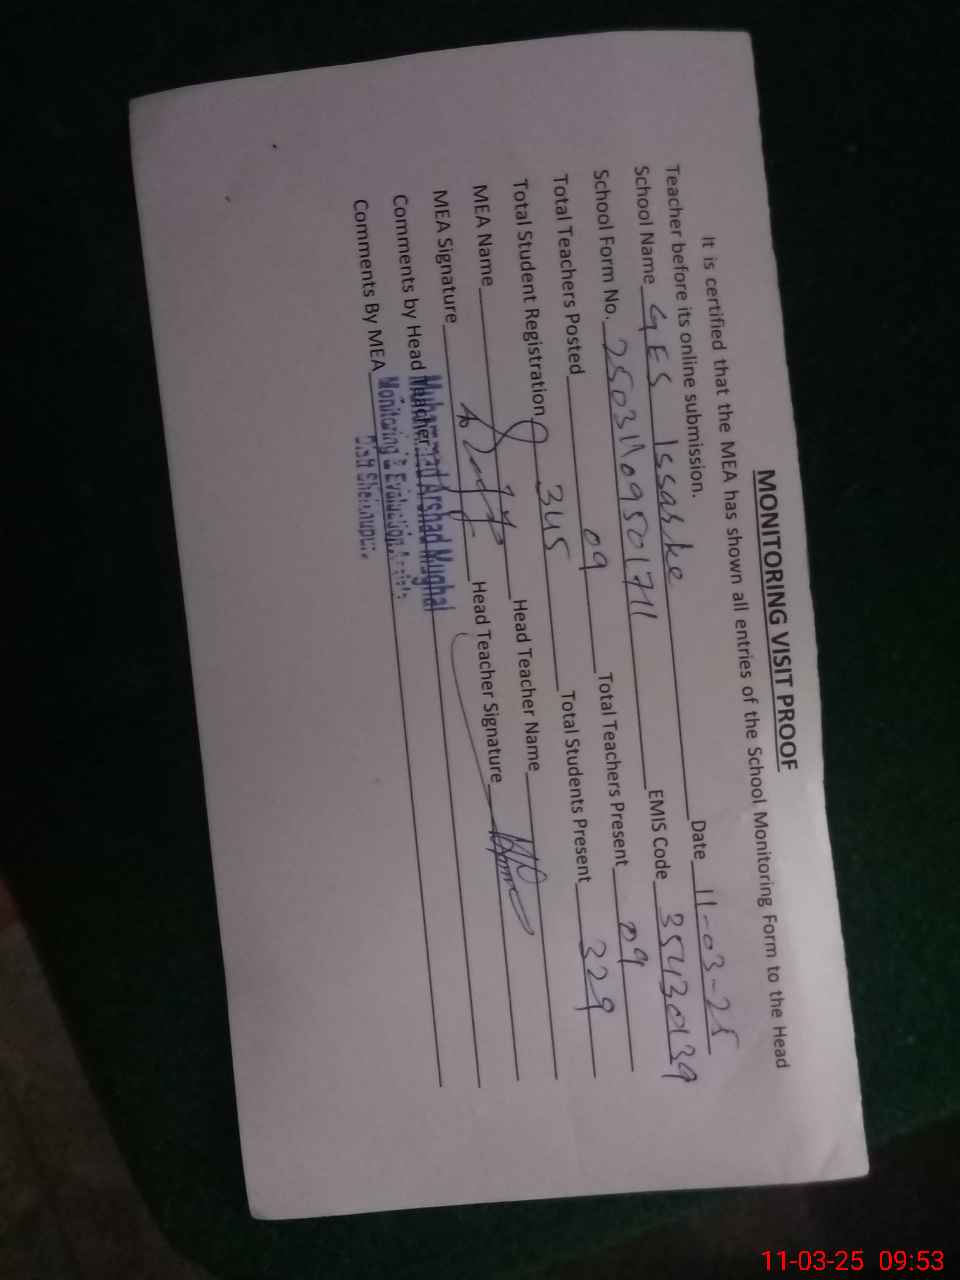 MONITORING VISIT PROOF
It is certified that the MEA has shown all entries of the School Monitoring Form to the Head
Teacher before its online submission. Date 11-03-25
School Name GES Issarke EMIS Code 35430139
School Form No. 25031109501711
Total Teachers Posted 09 Total Teachers Present 09
Total Student Registration 345 Total Students Present 329
MEA Name Head Teacher Name
MEA Signature Head Teacher Signature
Comments by Head Teacher
Muhammad Arshad Mughal
Comments By MEA
Monitoring & Evaluation
Distt Sheikhupura
11-03-25 09:53